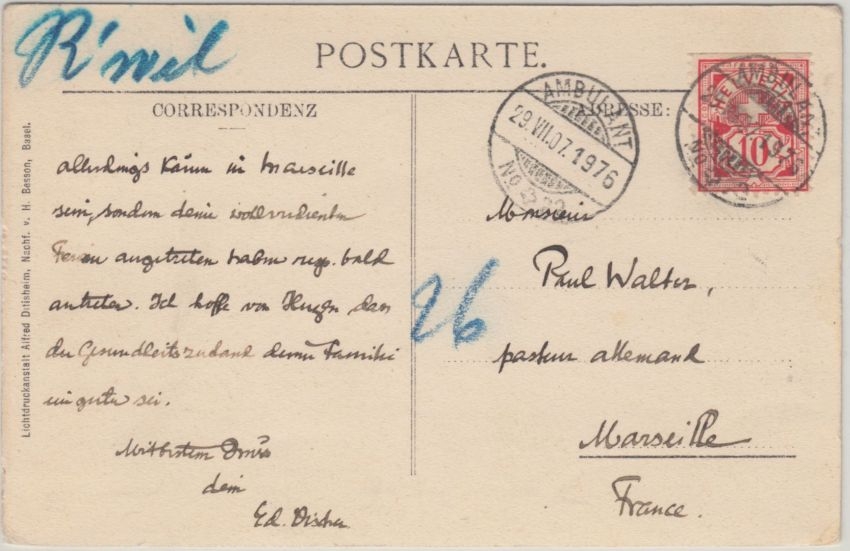 R'mil
POSTKARTE.
CORRESPONDENZ
ADRESSE:
AMBULANT
29.VII.07. 1976
No
HELVETIA
10
allerdings kaum in Marseille
sein, sondern deine wohlverdienten
Ferien angetreten haben resp. bald
antreten. Ich hoffe von Herzen dass
der Gesundheitszustand deiner Familie
ein guter sei.
Mit bestem Gruss
dein
Ed. Vischer
Monsieur
Paul Walter,
pasteur allemand
Marseille
France.
26
Lichtdruckanstalt Alfred Ditisheim, Nachf. v. H. Besson, Basel.